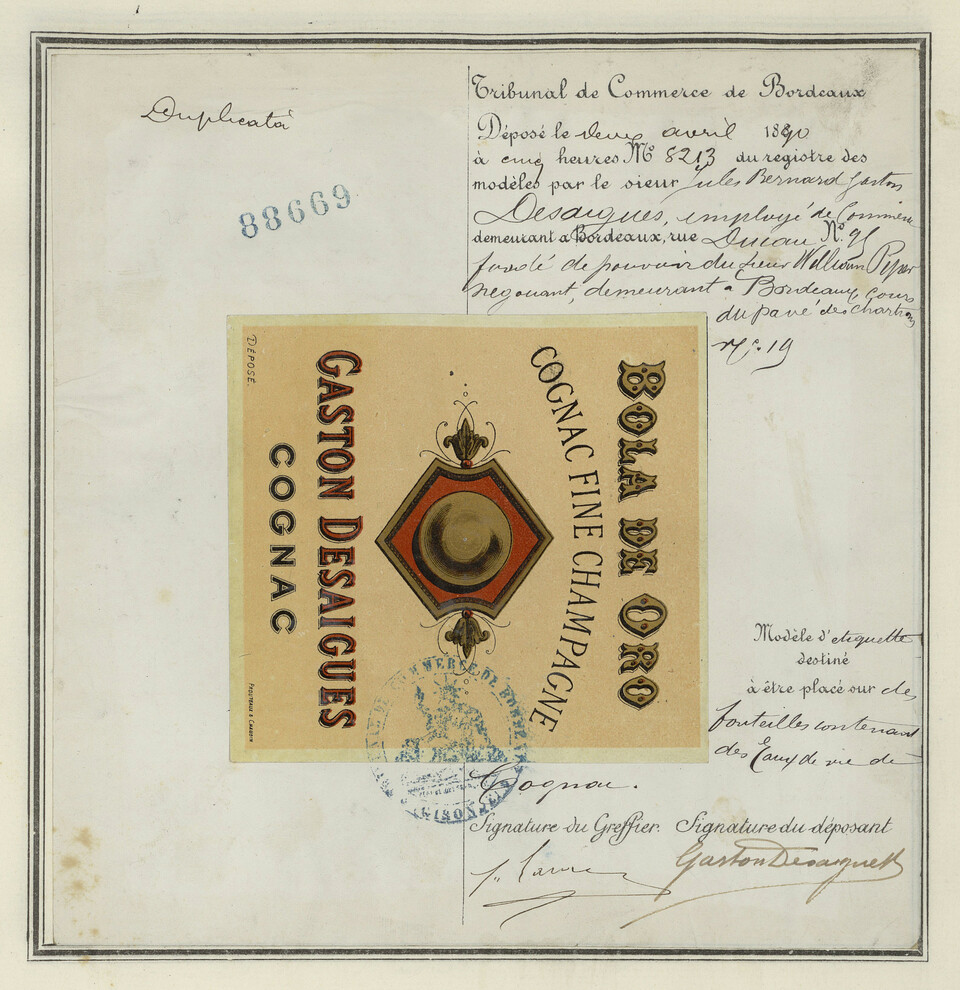 Duplicata
88669
Tribunal de Commerce de Bordeaux
Déposé le deux avril 1890
à cinq heures No 8213 du registre des
modèles par le sieur Jules Bernard Gaston
Desaigues, employé de Commerce
demeurant à Bordeaux, rue No.
fondé de pouvoir du sieur William Piper
négociant, demeurant à Bordeaux cours
du pavé des Chartrons
No. 19
BOLA DE ORO
COGNAC FINE CHAMPAGNE
GASTON DESAIGUES
COGNAC
DÉPOSÉ.
Modèle d'etiquette
destiné
à être placé sur des
bouteilles contenant
des Eaux de vie de
Cognac.
Signature du Greffier. Signature du déposant
Gaston Desaigues